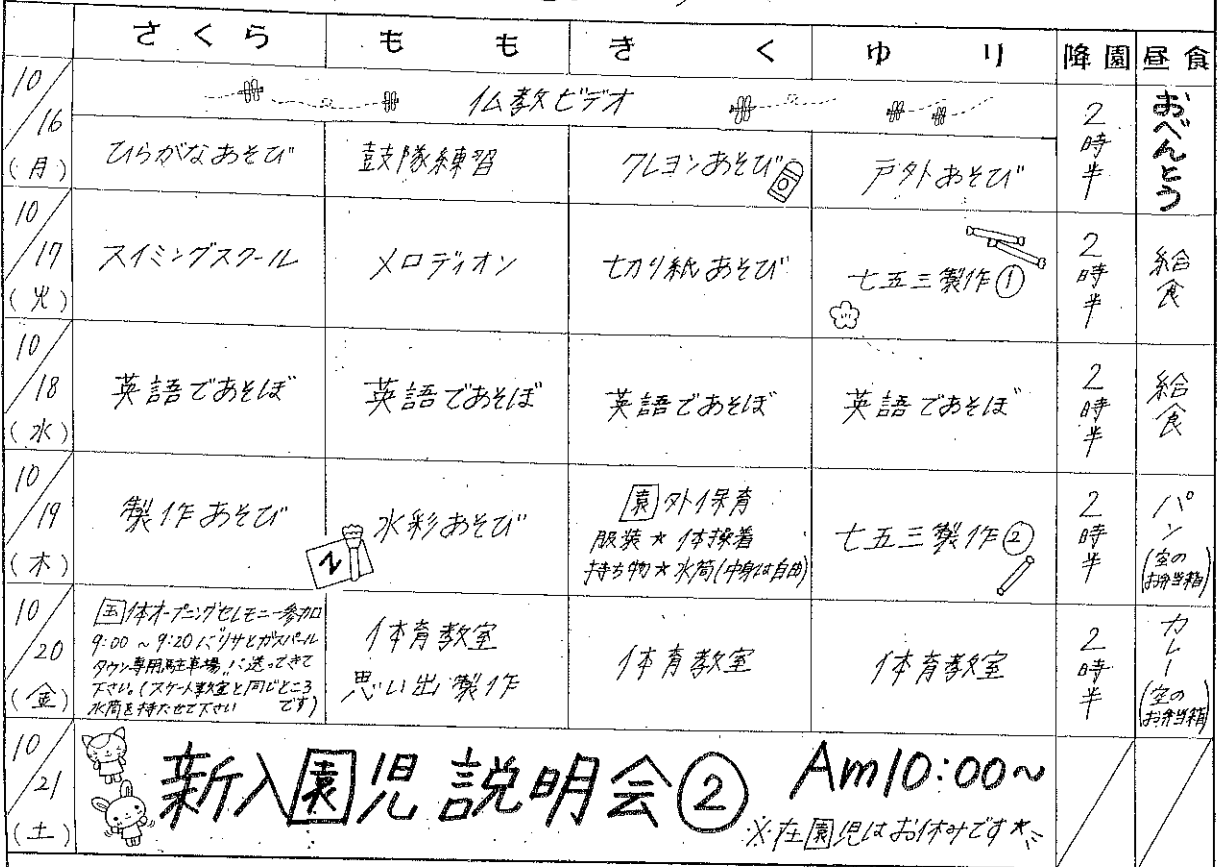 さくら もも きく ゆり 降園 昼食
10/16(月)
仏教ビデオ
ひらがなあそび
鼓隊練習
クレヨンあそび
戸外あそび
2時半
おべんとう
10/17(火)
スイミングスクール
メロディオン
切り紙あそび
七五三製作①
2時半
給食
10/18(水)
英語であそぼ
英語であそぼ
英語であそぼ
英語であそぼ
2時半
給食
10/19(木)
製作あそび
水彩あそび
園外保育
服装★体操着
持ち物★水筒(中身は自由)
七五三製作②
2時半
パン
(空の
お弁当箱)
10/20(金)
国体オープニングセレモニー参加
9:00~9:20に"リサとガスパール
タウン専用駐車場"に送ってきて
下さい。(スケート教室と同じところ
水筒を持たせて下さい です)
体育教室
思い出製作
体育教室
体育教室
2時半
カレー
(空の
お弁当箱)
10/21(土)
新入園児説明会② Am10:00~
※在園児はお休みです★